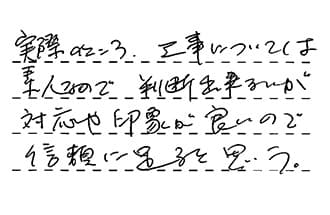 実際のところ、工事については
素人なので 判断出来ないが
対応や印象が良いので
信頼に足ると思う。